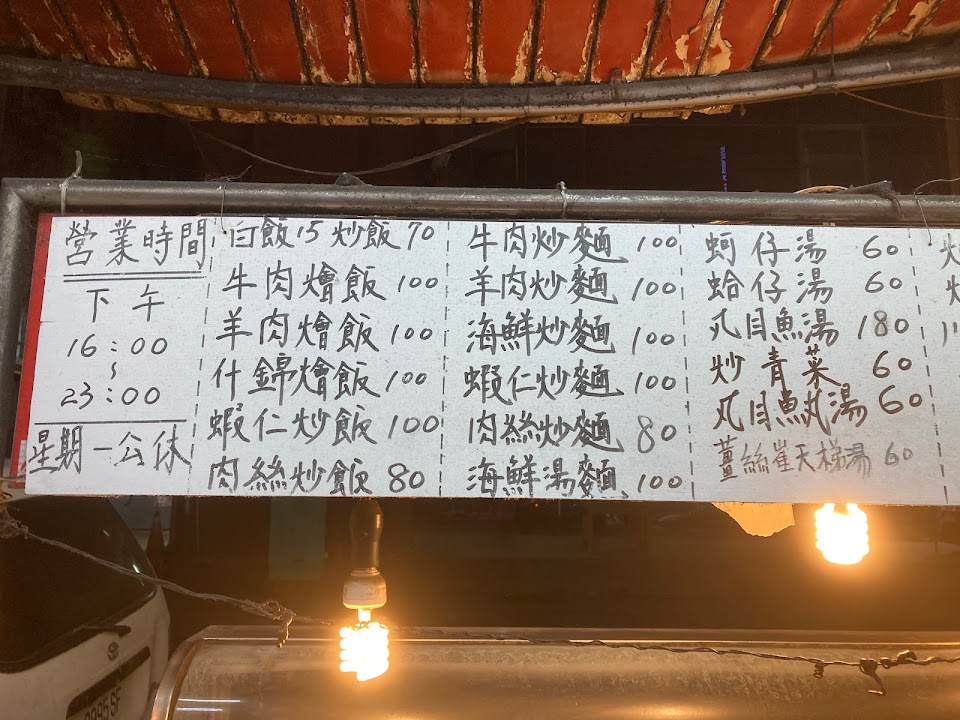 營業時間
下午
16:00
~
23:00
星期一公休
白飯15 炒飯70
牛肉燴飯 100
羊肉燴飯 100
什錦燴飯 100
蝦仁炒飯 100
肉絲炒飯 80
牛肉炒麵 100
羊肉炒麵 100
海鮮炒麵 100
蝦仁炒麵 100
肉絲炒麵 80
海鮮湯麵 100
蚵仔湯 60
蛤仔湯 60
虱目魚湯 180
炒青菜 60
虱目魚丸湯 60
薑絲崔天梯湯 60